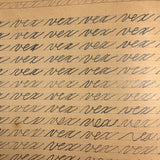 vex vex vex vex vex vex
vex vex vex vex vex vex
vex vex vex vex vex vex
vex vex vex vex vex vex
vex vex vex vex vex vex
vex vex vex vex vex vex
vex vex vex vex vex vex
vex vex vex vex vex vex
vex vex vex vex vex
vex vex vex vex